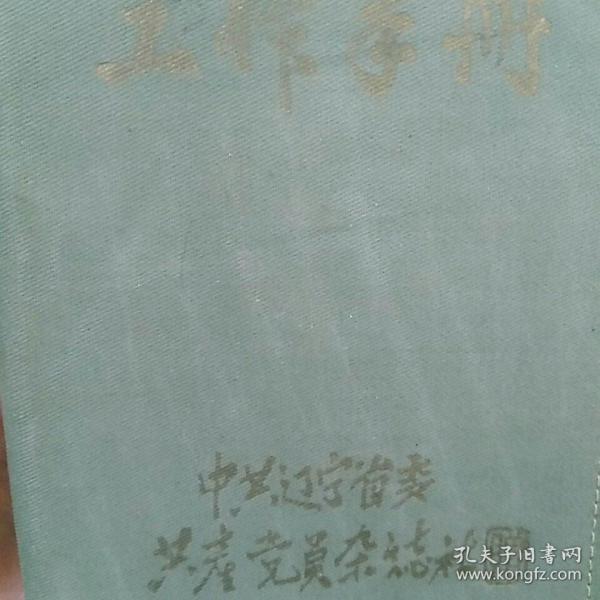 工作手册
中共辽宁省委
共產党员杂志社
孔夫子旧书网
www.kongfz.com